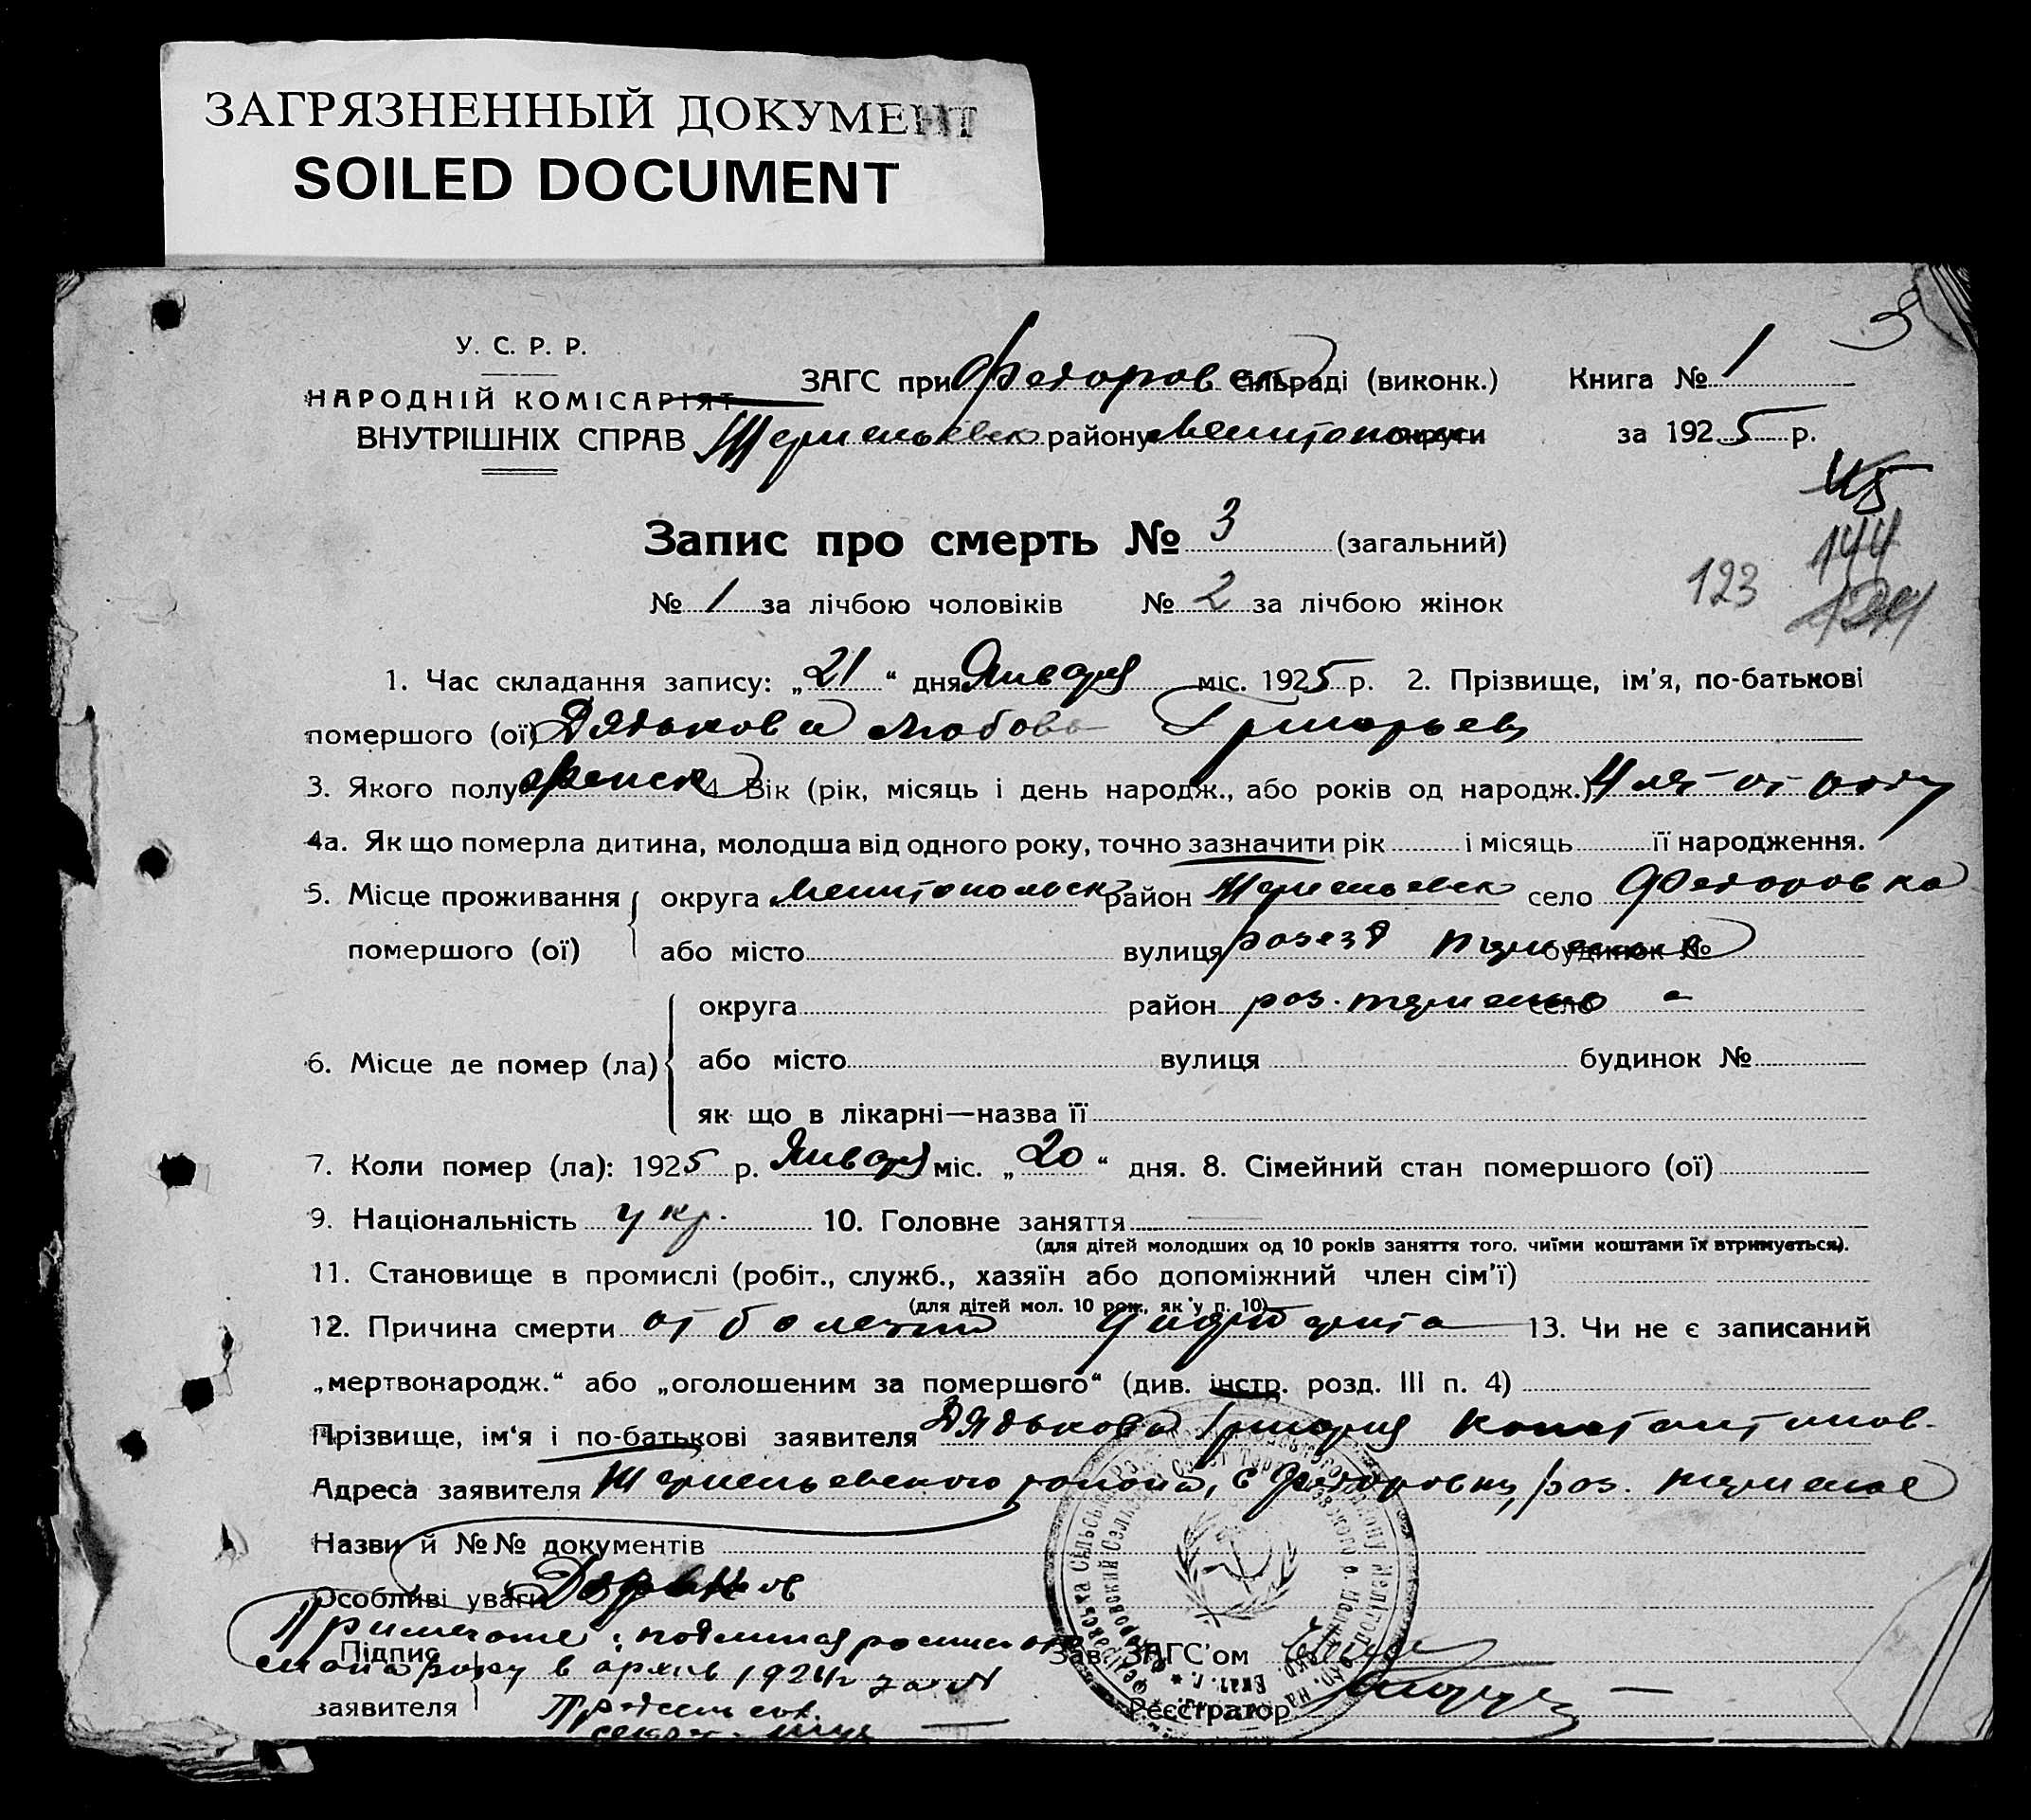 ЗАГРЯЗНЕННЫЙ ДОКУМЕНТ
SOILED DOCUMENT
3
У. С. Р. Р.
НАРОДНІЙ КОМІСАРІЯТ
ВНУТРІШНІХ СПРАВ
ЗАГС при Федоровск сільраді (виконк.) Книга № 1
району Мелитопольск округи за 1925 р.
145
144
123
124
Запис про смерть № 3 (загальний)
№ 1 за лічбою чоловіків № 2 за лічбою жінок
1. Час складання запису: „21“ дня Января міс. 1925 р. 2. Прізвище, ім'я, по-батькові
помершого (ої) Дядькова Любовь Григорьев
3. Якого полу женск 4 Вік (рік, місяць і день народж., або років од народж.) 4 лет от роду
4а. Як що померла дитина, молодша від одного року, точно зазначити рік і місяць її народження.
5. Місце проживання помершого (ої)
округа Мелитопольск район село Федоровка
або місто вулиця розезд будинок №
6. Місце де помер (ла)
округа район роз. село
або місто вулиця будинок №
як що в лікарні—назва її
7. Коли помер (ла): 1925 р. Января міс. „20“ дня. 8. Сімейний стан помершого (ої)
9. Національність укр. 10. Головне заняття
(для дітей молодших од 10 років заняття того, чиїми коштами їх втримується).
11. Становище в промислі (робіт., служб., хазяїн або допоміжний член сім'ї)
(для дітей мол. 10 рок., як у п. 10)
12. Причина смерти от болезни 13. Чи не є записаний
„мертвонародж.“ або „оголошеним за помершого“ (див. інстр. розд. III п. 4)
Прізвище, ім'я і по-батькові заявителя Дядькова Григория Константинов-
Адреса заявителя района, с Федоровки, роз.
Назви й №№ документів
Особливі уваги
Примечание: подлинная
в архив 1924 г за №
Підпис
заявителя
Зав. ЗАГС'ом
Реєстратор